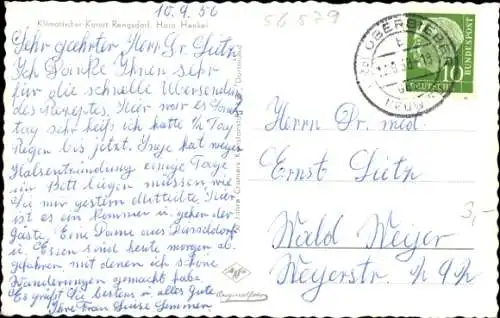 10.9.56
56 879
Klimatischer Kurort Rengsdorf. Haus Henkel
Sehr geehrter Herr Dr. Lietz
Ich Danke Ihnen sehr
für die schnelle Übersendung
des Rezeptes. Hier war es Sonn
tag sehr heiß ich hatte 1/2 Tag
Regen bis jetzt. Inge hat wegen
Halsentzündung einige Tage
im Bett liegen müssen, wie
Sie mir gestern mitteilte. Hier
ist es ein Kommen u. gehen der
Gäste. Eine Dame aus Düsseldorf
u. Essen sind heute morgen ab
gefahren mit denen ich schöne
Wanderungen gemacht habe.
Es grüßt Sie bestens u. alles Gute
Ihre Frau Louise Semmen
OBERBIEBER
NEUW
10
DEUTSCHE BUNDESPOST
Herrn Dr. med.
Ernst Lietz
3,-
Wald Weijer
Weyerstr.
Agfa